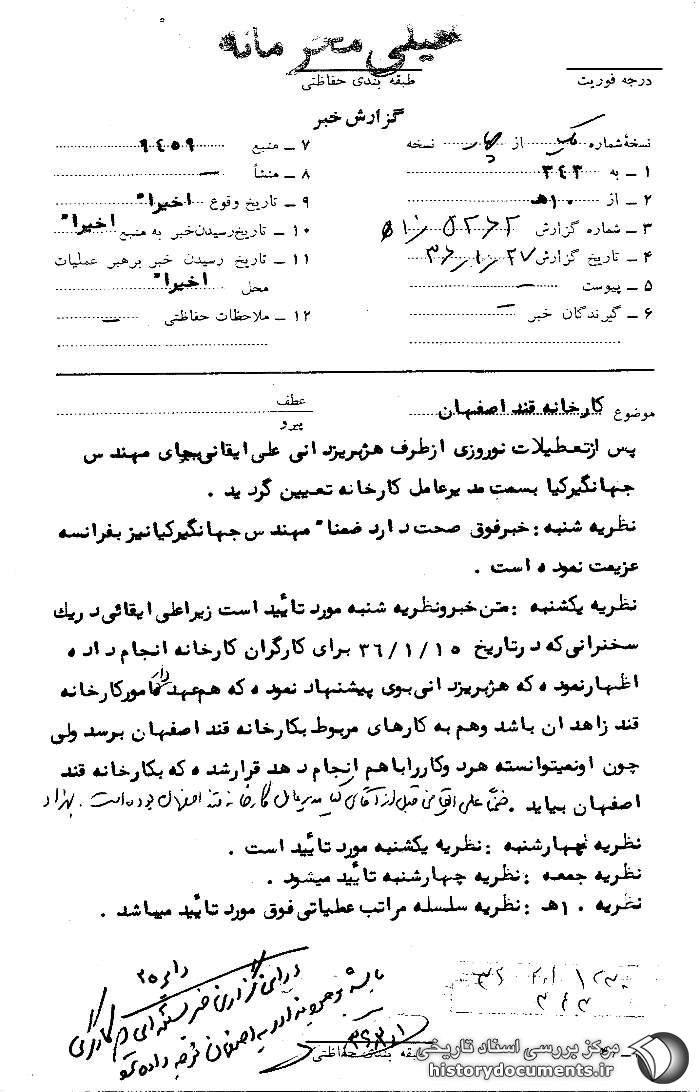 خیلی محرمانه
طبقه بندی حفاظتی
درجه فوریت
گزارش خبر
نسخهٔ شماره یک از چهار نسخه
۱ ـ به ۳۴۳
۲ ـ از ۱۰هـ
۳ ـ شماره گزارش
۴ ـ تاریخ گزارش ۳۶/۱/۲۷
۵ ـ پیوست ــ
۶ ـ گیرندگان خبر ــ
۷ ـ منبع ۹۴۵۹
۸ ـ منشأ ــ
۹ ـ تاریخ وقوع اخیراً
۱۰ ـ تاریخ رسیدن خبر به منبع اخیراً
۱۱ ـ تاریخ رسیدن خبر برهبر عملیات
محل اخیراً
۱۲ ـ ملاحظات حفاظتی ــ
موضوع کارخانه قند اصفهان
عطف
پیرو
پس ازتعطیلات نوروزی ازطرف هژبریزدانی علی ایقانی بجای مهندس
جهانگیرکیا بسمت مدیرعامل کارخانه تعیین گردید .
نظریه شنبه : خبرفوق صحت دارد ضمناً مهندس جهانگیرکیانیز بفرانسه
عزیمت نموده است .
نظریه یکشنبه : متن خبرونظریه شنبه مورد تائید است زیراعلی ایقائی دریك
سخنرانی که درتاریخ ۳۶/۱/۱۵ برای کارگران کارخانه انجام داده
اظهارنموده که هژبریزدانی بوی پیشنهاد نموده که هم عهده دار امورکارخانه
قند زاهدان باشد وهم به کارهای مربوط بکارخانه قند اصفهان برسد ولی
چون اونمیتوانسته هردوکاررا باهم انجام دهد قرارشده که بکارخانه قند
اصفهان بیاید . ضمناً علی ایقانی قبل از آقای کیا مدیرعامل کارخانه قند اصفهان بوده است . بهزاد
نظریه چهارشنبه : نظریه یکشنبه مورد تائید است .
نظریه جمعه : نظریه چهارشنبه تائید میشود .
نظریه ۱۰هـ : نظریه سلسله مراتب عطیاتی فوق مورد تائید میباشد .
۳۴۳
طبقه بندی حفاظتی
مرکز بررسی اسناد تاریخی
historydocuments.ir